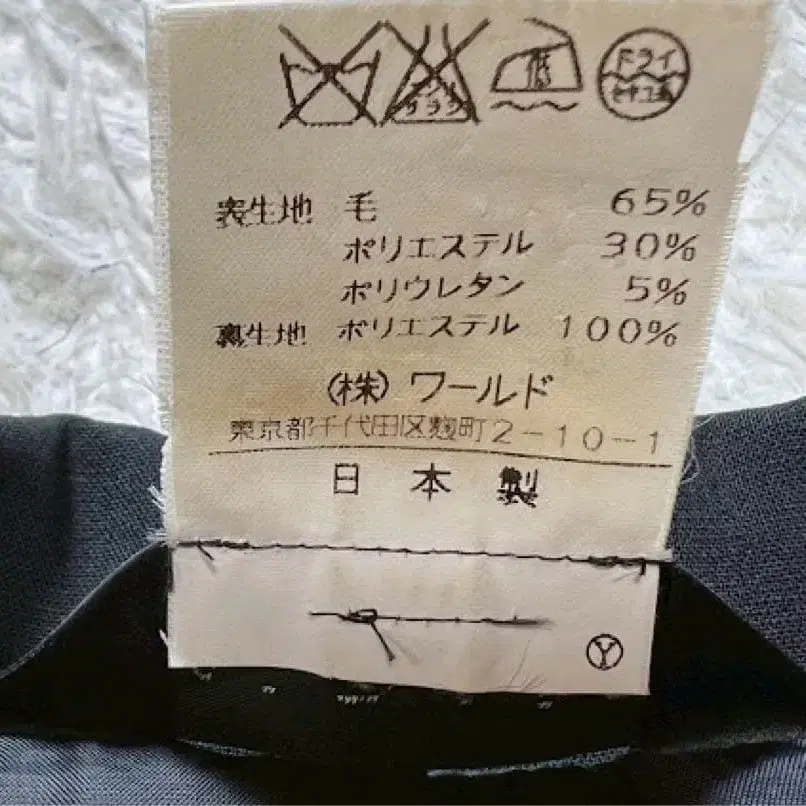 エンソ サラシ 低 ドライ セキユ系
表生地 毛 65%
ポリエステル 30%
ポリウレタン 5%
裏生地 ポリエステル 100%
(株) ワールド
東京都千代田区麹町2-10-1
日本製
Ⓨ